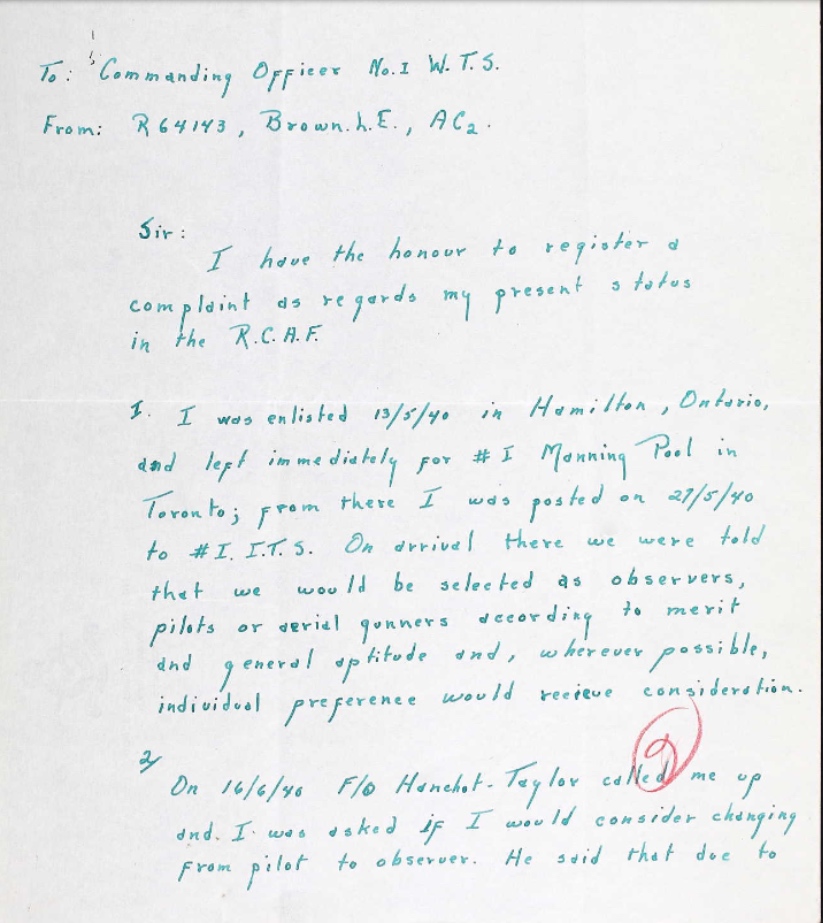 To: Commanding Officer No. I W.T.S.
From: R64143, Brown. L.E., AC2.
Sir:
I have the honour to register a
complaint as regards my present status
in the R.C.A.F.
1. I was enlisted 13/5/40 in Hamilton, Ontario,
and left immediately for #I Manning Pool in
Toronto; from there I was posted on 27/5/40
to #I. I.T.S. On arrival there we were told
that we would be selected as observers,
pilots or aerial gunners according to merit
and general aptitude and, wherever possible,
individual preference would recieve consideration.
2/
On 16/6/40 F/O Hanchet-Taylor called me up
and. I was asked if I would consider changing
from pilot to observer. He said that due to